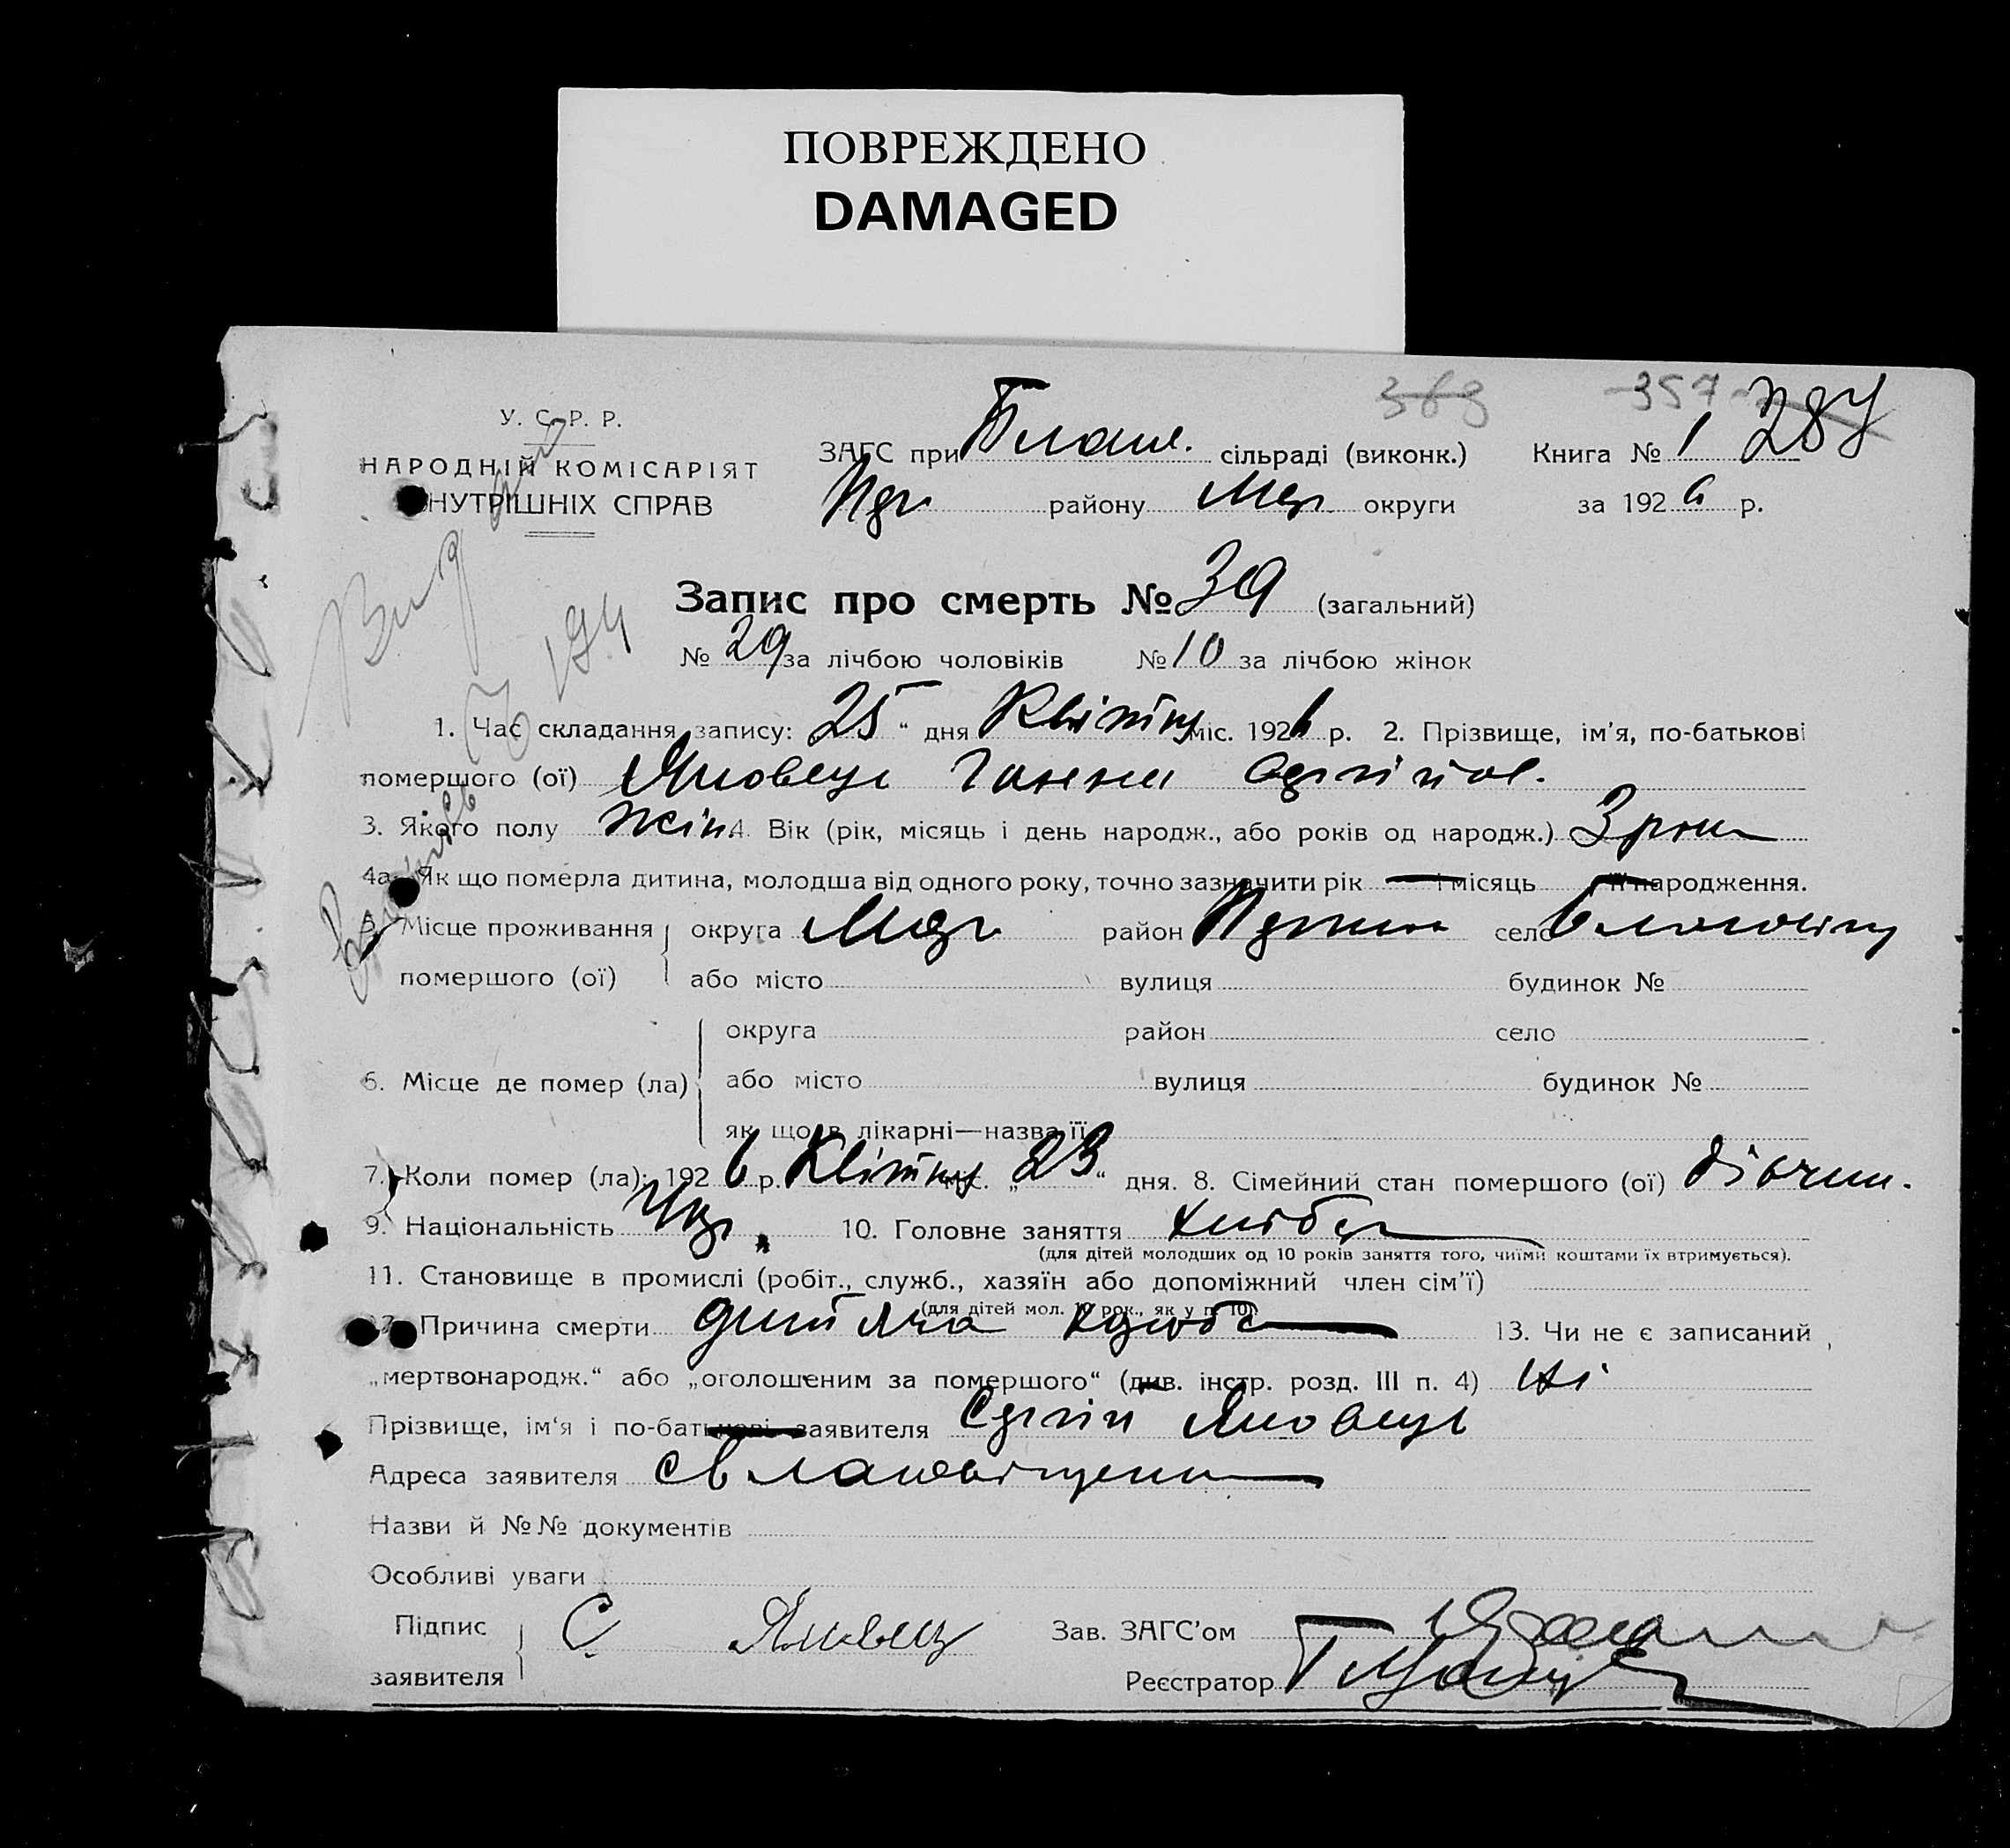 ПОВРЕЖДЕНО
DAMAGED
369 357 287
У. С. Р. Р.
НАРОДНІЙ КОМІСАРІЯТ
ВНУТРІШНІХ СПРАВ
ЗАГС при сільраді (виконк.) Книга № 1
району округи за 1926 р.
Запис про смерть № 39 (загальний)
№ 29 за лічбою чоловіків № 10 за лічбою жінок
1. Час складання запису: „25“ дня Квітня міс. 1926 р. 2. Прізвище, ім'я, по-батькові
помершого (ої) Яковець Ганна
3. Якого полу жін. 4. Вік (рік, місяць і день народж., або років од народж.) 3 роки
4а. Як що померла дитина, молодша від одного року, точно зазначити рік і місяць її народження.
5. Місце проживання округа район село
помершого (ої) або місто вулиця будинок №
округа район село
6. Місце де помер (ла) або місто вулиця будинок №
як що в лікарні—назва її
7. Коли помер (ла): 1926 р. Квітня міс. „23“ дня. 8. Сімейний стан помершого (ої) дівчин.
9. Національність Укр. 10. Головне заняття хлібор
(для дітей молодших од 10 років заняття того, чиїми коштами їх втримується).
11. Становище в промислі (робіт., служб., хазяїн або допоміжний член сім'ї)
(для дітей мол. 10 рок., як у п. 10)
12. Причина смерти дитяча хороба 13. Чи не є записаний
„мертвонародж.“ або „оголошеним за помершого“ (див. інстр. розд. III п. 4) ні
Прізвище, ім'я і по-батькові заявителя Сергій Яковець
Адреса заявителя
Назви й №№ документів
Особливі уваги
Підпис С Яковец Зав. ЗАГС'ом
заявителя Реєстратор